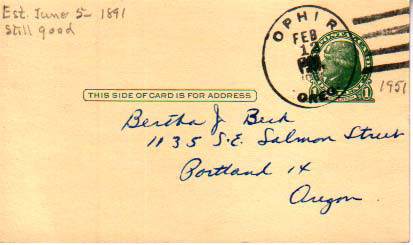 Est. June 5- 1891
Still good
OPHIR
FEB
12
OREG.
1951
THIS SIDE OF CARD IS FOR ADDRESS
Bertha J Beck
1135 S.E. Salmon Street
Portland 14
Oregon